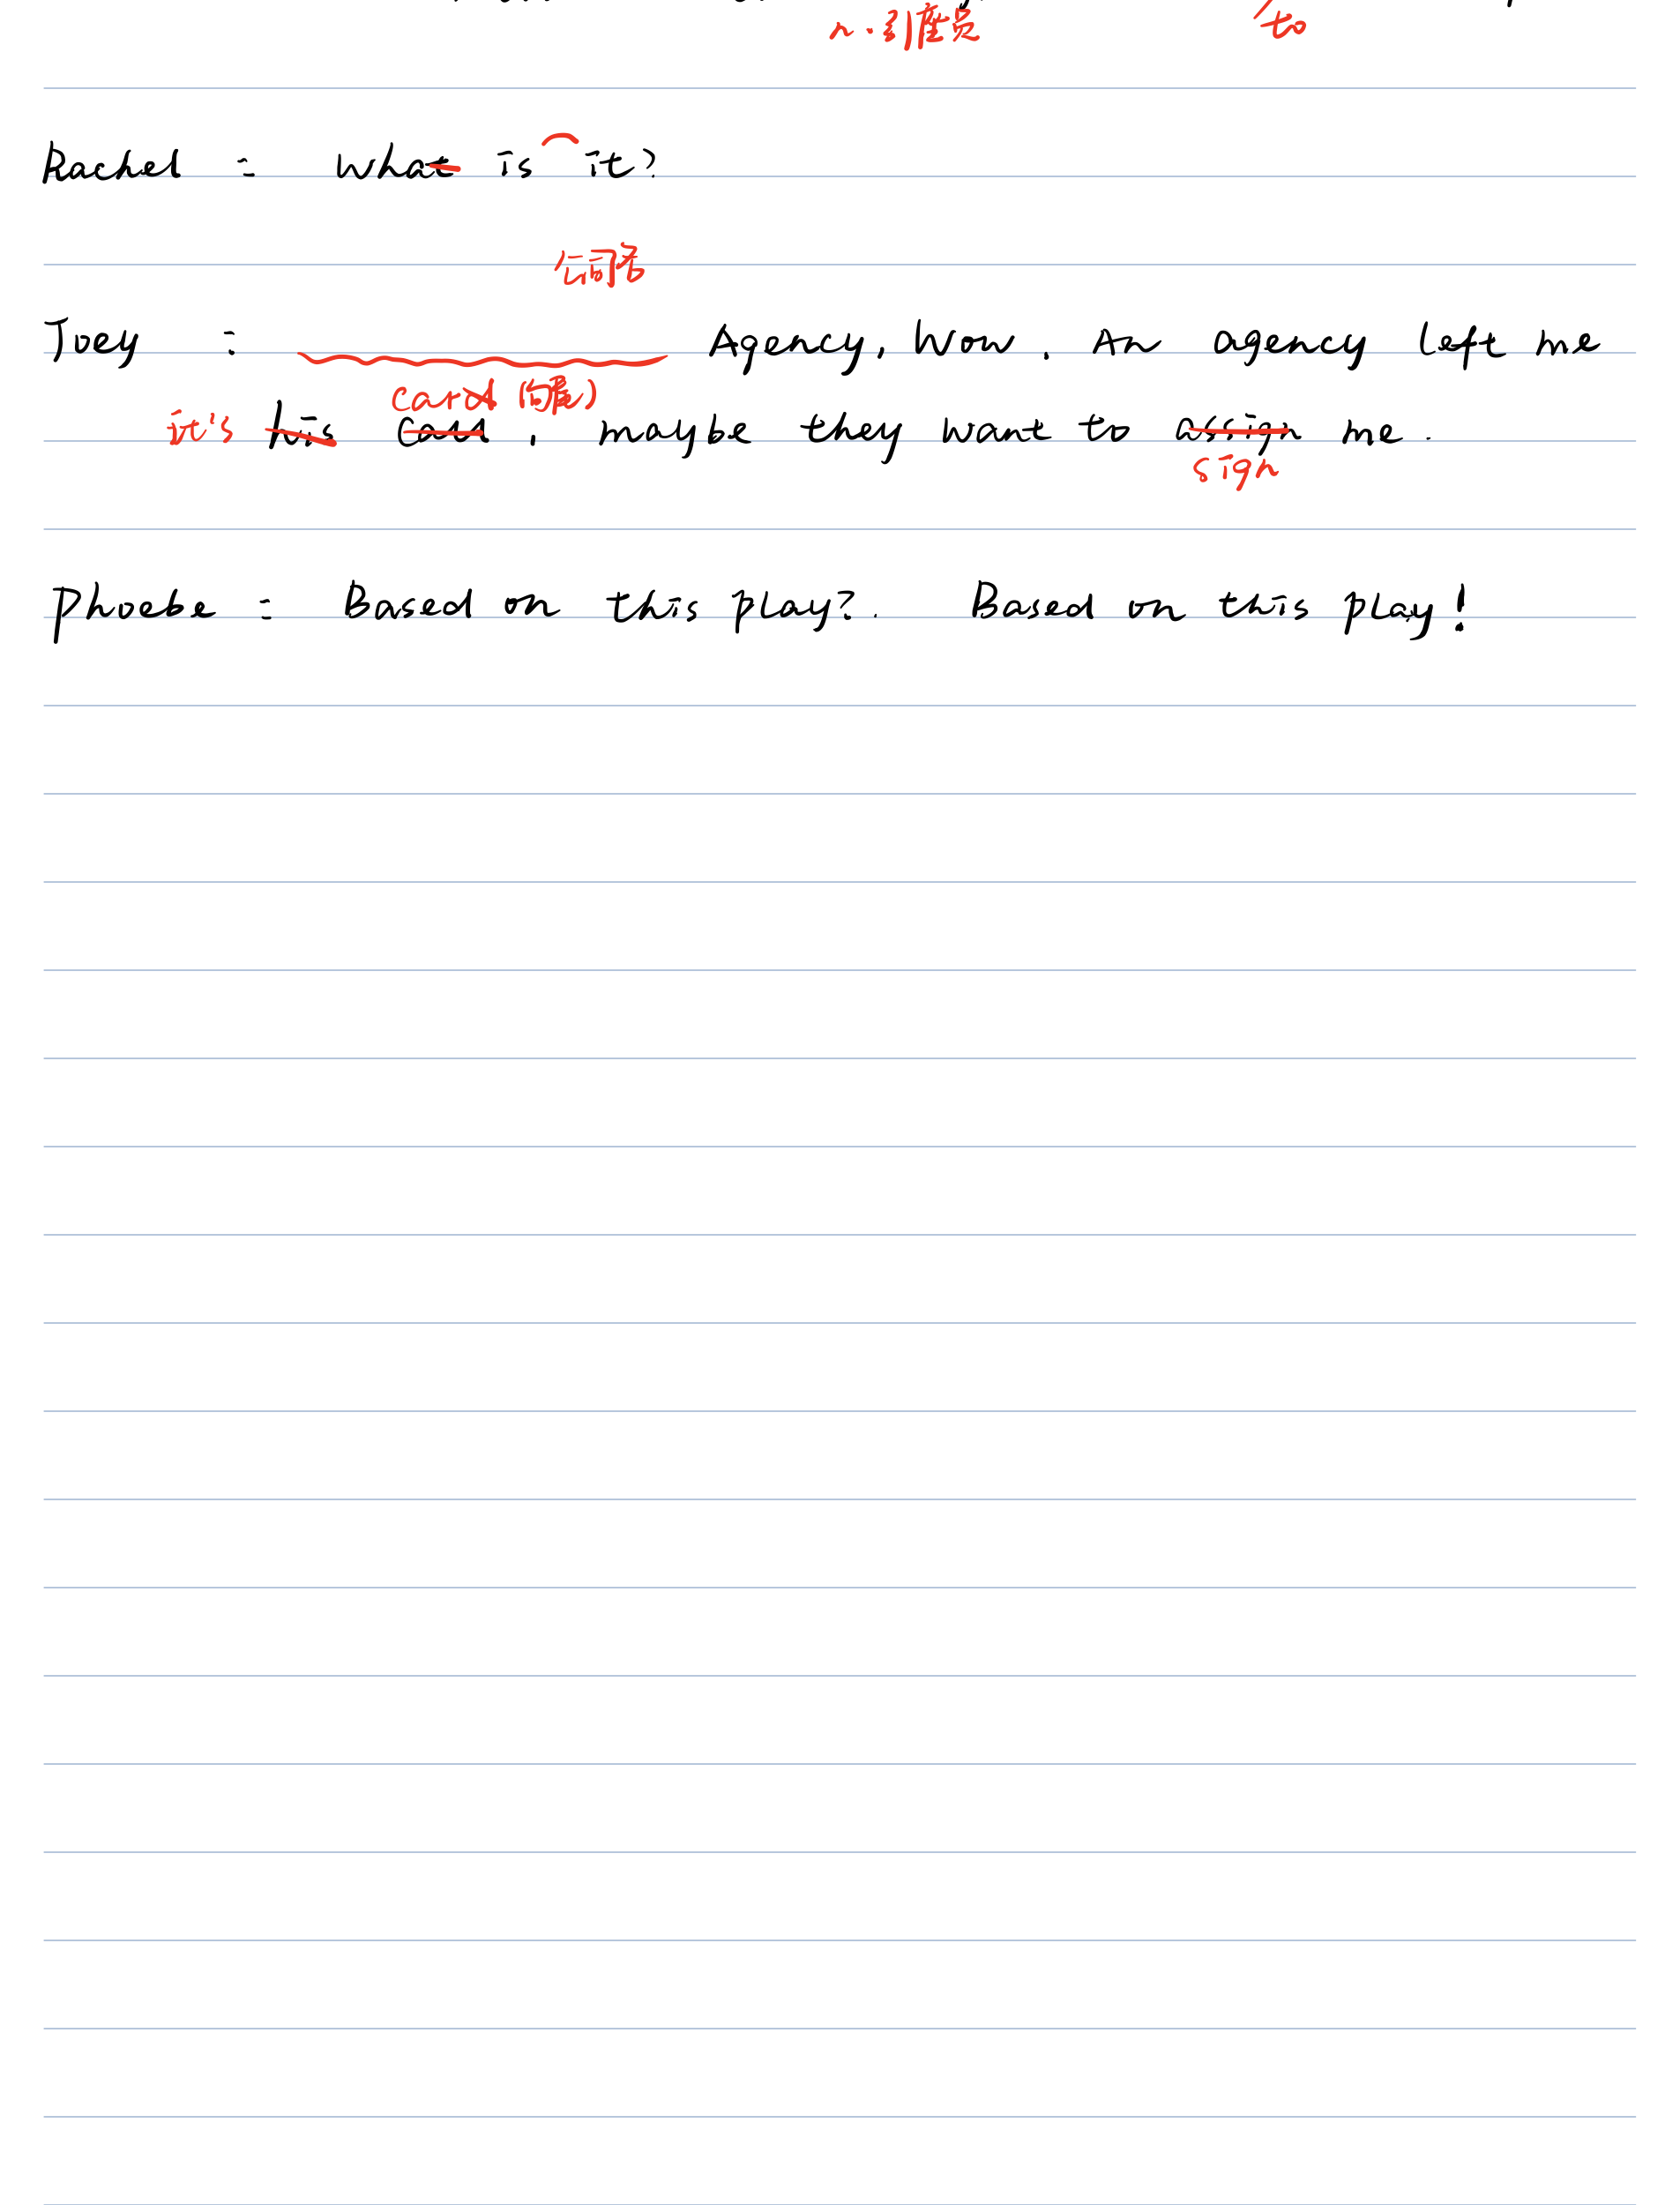 n. 引座员 to
Rachel : What is it?
公司名
Joey : Agency, wow. An agency left me
card (向晨)
it's his card, maybe they want to assign me.
sign
Phoebe : Based on this play? . Based on this play!